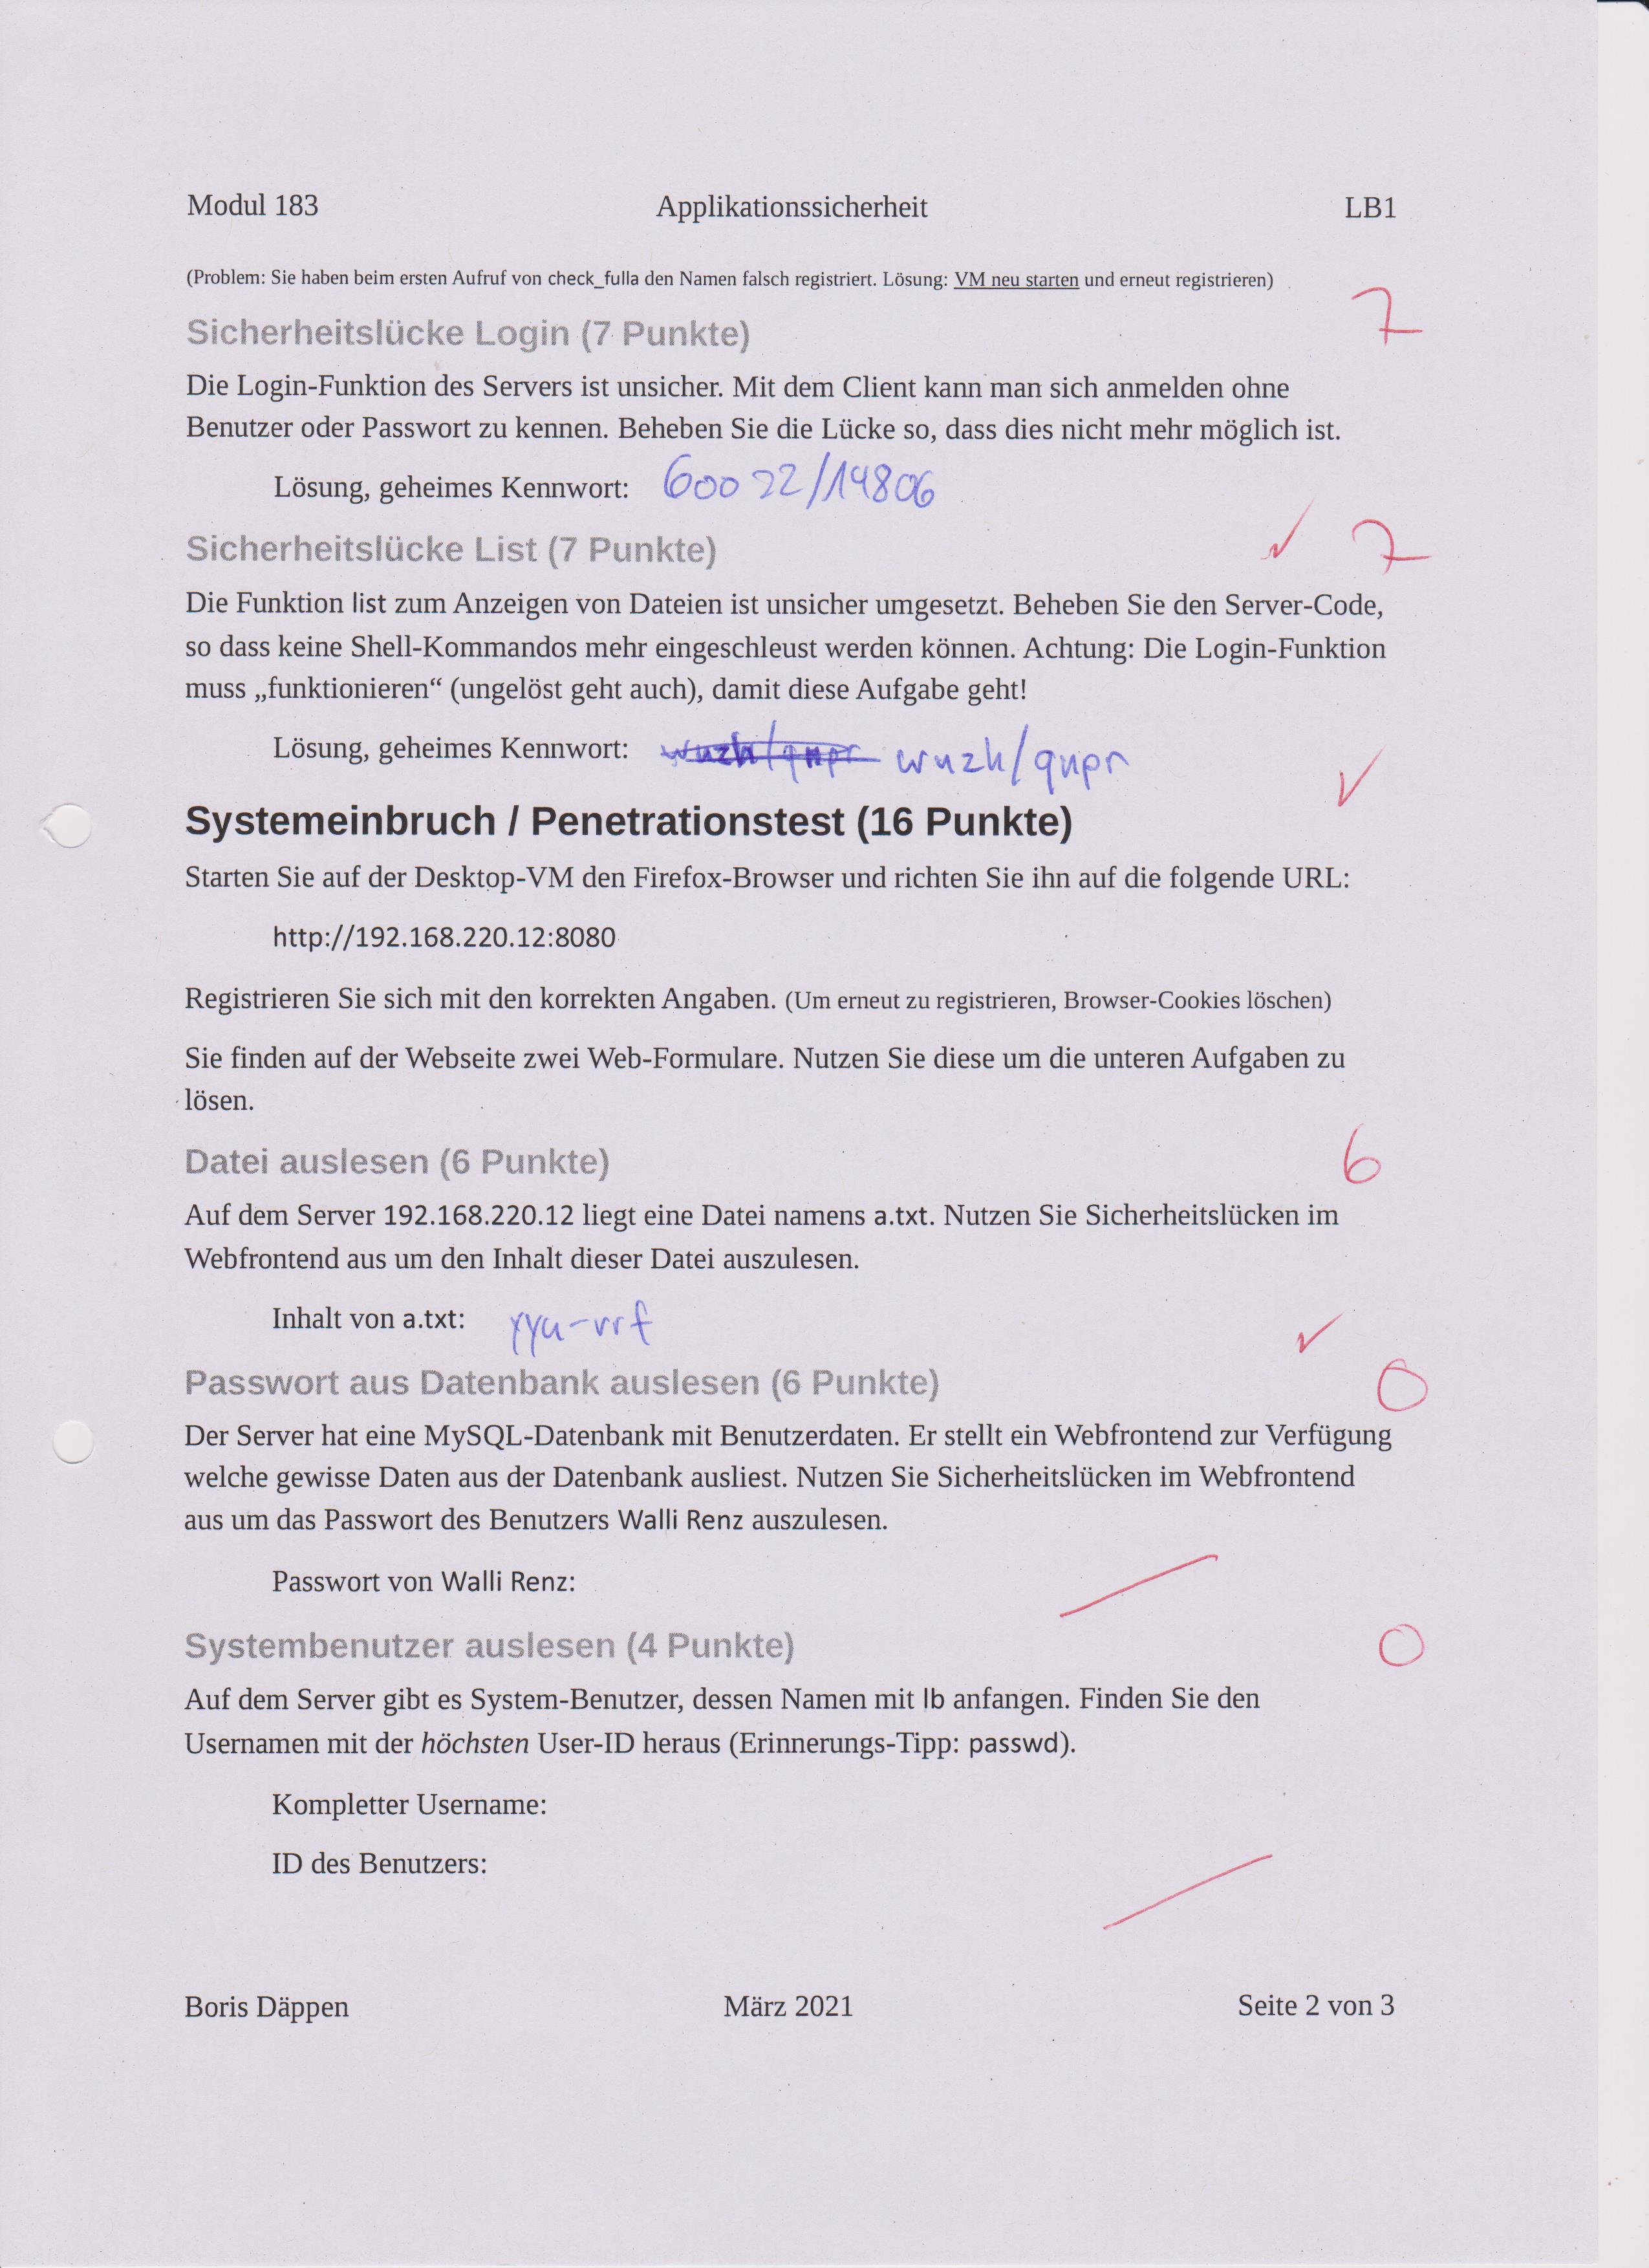 Modul 183 Applikationssicherheit LB1
(Problem: Sie haben beim ersten Aufruf von check_fulla den Namen falsch registriert. Lösung: VM neu starten und erneut registrieren)
7
Sicherheitslücke Login (7 Punkte)
Die Login-Funktion des Servers ist unsicher. Mit dem Client kann man sich anmelden ohne
Benutzer oder Passwort zu kennen. Beheben Sie die Lücke so, dass dies nicht mehr möglich ist.
Lösung, geheimes Kennwort: 60022/14806
Sicherheitslücke List (7 Punkte) ✓ 7
Die Funktion list zum Anzeigen von Dateien ist unsicher umgesetzt. Beheben Sie den Server-Code,
so dass keine Shell-Kommandos mehr eingeschleust werden können. Achtung: Die Login-Funktion
muss „funktionieren“ (ungelöst geht auch), damit diese Aufgabe geht!
Lösung, geheimes Kennwort: wuzh/qnpr wuzh/qnpr
✓
Systemeinbruch / Penetrationstest (16 Punkte)
Starten Sie auf der Desktop-VM den Firefox-Browser und richten Sie ihn auf die folgende URL:
http://192.168.220.12:8080
Registrieren Sie sich mit den korrekten Angaben. (Um erneut zu registrieren, Browser-Cookies löschen)
Sie finden auf der Webseite zwei Web-Formulare. Nutzen Sie diese um die unteren Aufgaben zu
lösen.
Datei auslesen (6 Punkte) 6
Auf dem Server 192.168.220.12 liegt eine Datei namens a.txt. Nutzen Sie Sicherheitslücken im
Webfrontend aus um den Inhalt dieser Datei auszulesen.
Inhalt von a.txt: yya-vrf ✓
Passwort aus Datenbank auslesen (6 Punkte) 0
Der Server hat eine MySQL-Datenbank mit Benutzerdaten. Er stellt ein Webfrontend zur Verfügung
welche gewisse Daten aus der Datenbank ausliest. Nutzen Sie Sicherheitslücken im Webfrontend
aus um das Passwort des Benutzers Walli Renz auszulesen.
Passwort von Walli Renz:
Systembenutzer auslesen (4 Punkte) 0
Auf dem Server gibt es System-Benutzer, dessen Namen mit lb anfangen. Finden Sie den
Usernamen mit der höchsten User-ID heraus (Erinnerungs-Tipp: passwd).
Kompletter Username:
ID des Benutzers:
Boris Däppen März 2021 Seite 2 von 3